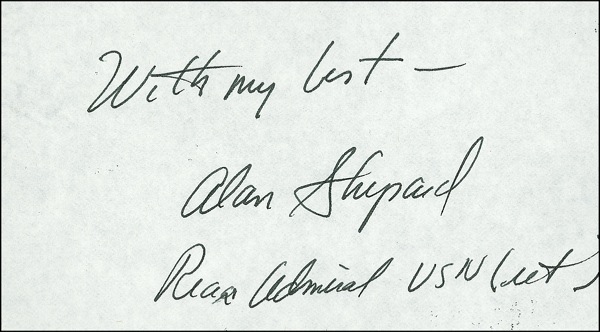 With my best –
Alan Shepard
Rear Admiral USN (ret)